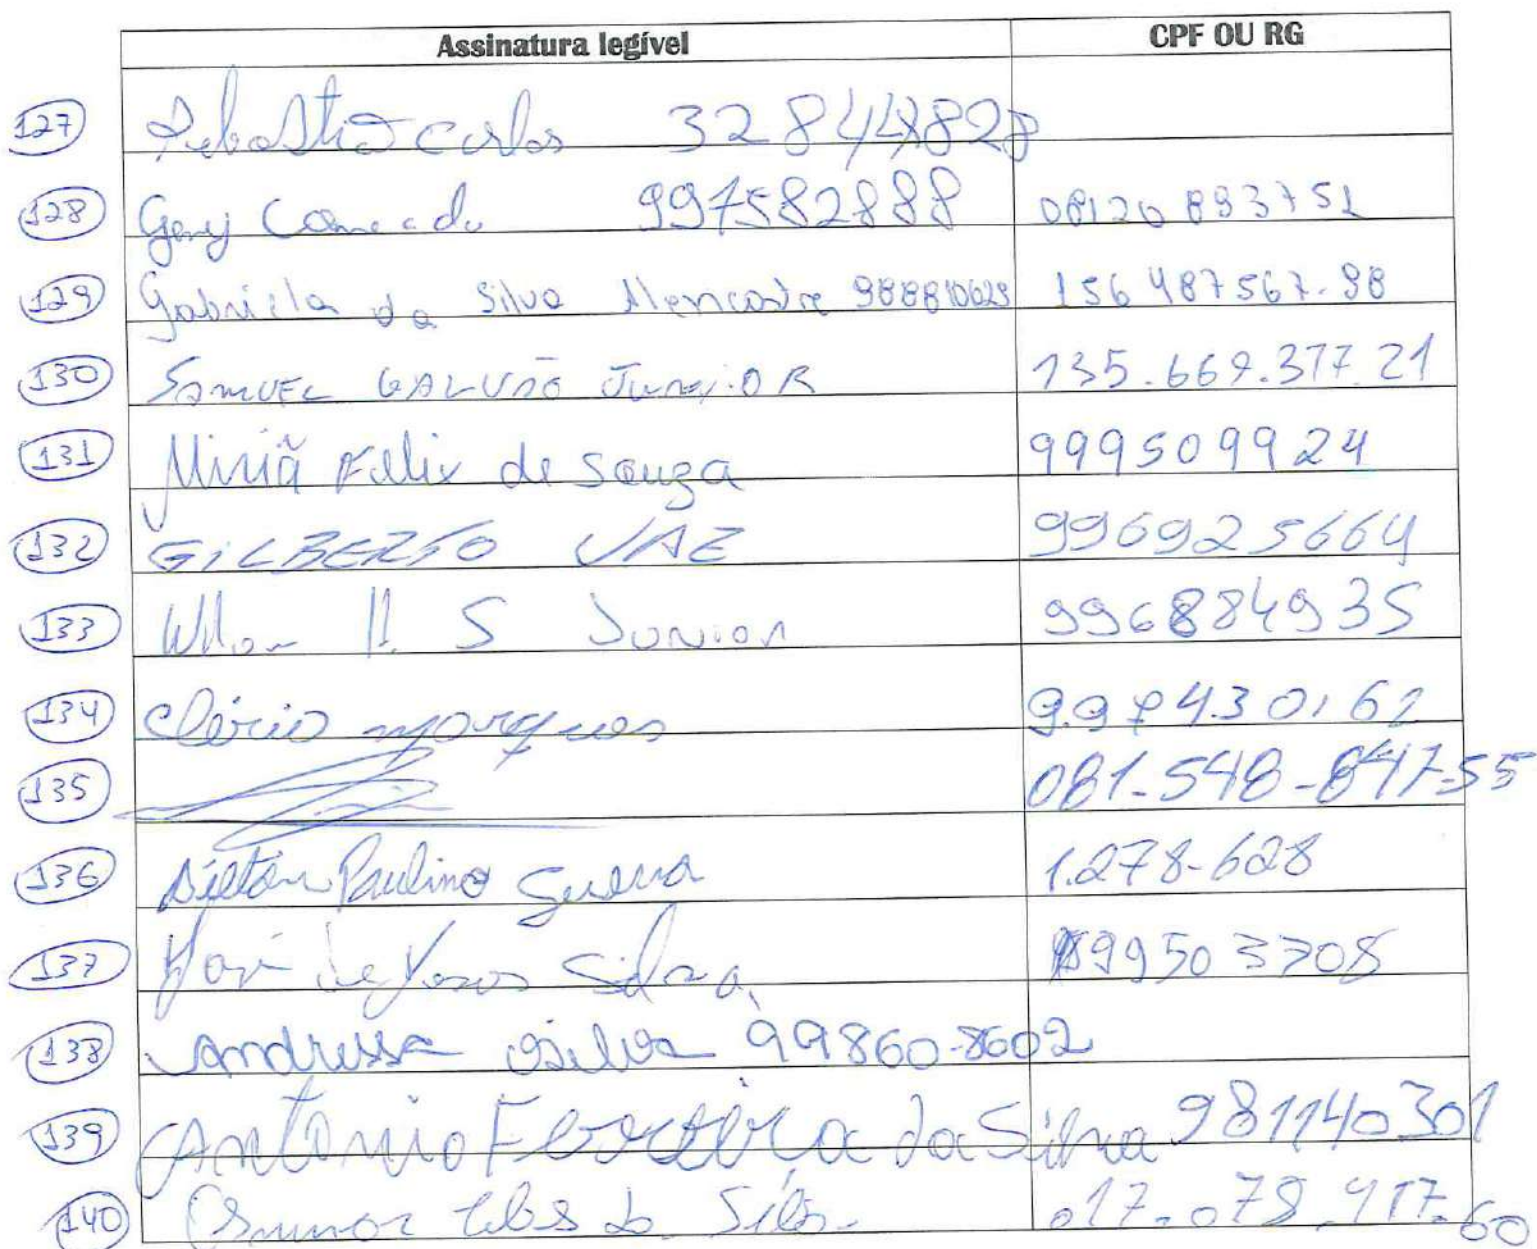 Assinatura legível CPF OU RG
127 Sebastião Carlos 328448828
128 Geny 997582888 08120893751
129 Gabriela da Silva Alencastre 988810629 156487567-98
130 SAMUEL GALVÃO JUNIOR 135.669.377.21
131 Miriã Felix de Souza 999509924
132 GILBERTO VAZ 996925664
133 S JUNIOR 996884935
134 Clério marques 9.97430162
135 081-548-847-55
136 Dilton Paulino Guerra 1.278-628
137 José de Jesus Silva 999503308
138 Andressa Silva 99860-8602
139 Antonio Ferreira da Silva 981140301
140 017-078.417-60